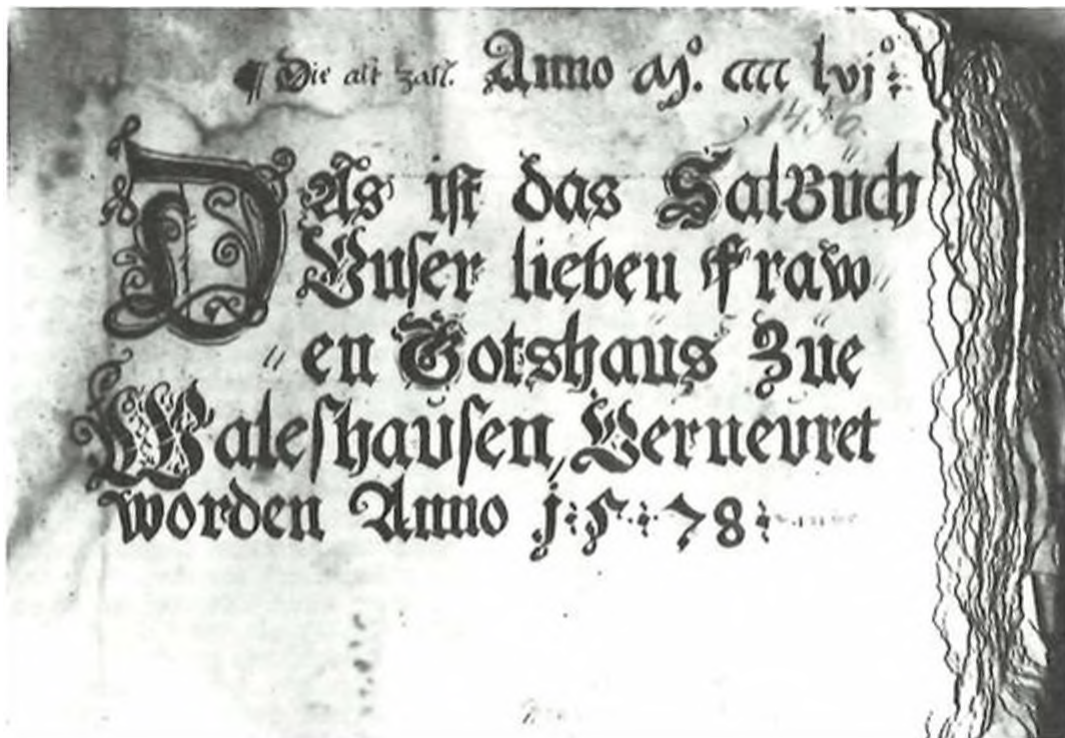 ¶ Die alt zall. Anno M°. cccc lvj°
1456.
Das ist das Salbuch
Vnser lieben Fraw
en Gotshaus Zue
Waleshausen, Vernewret
worden Anno j·5·78·